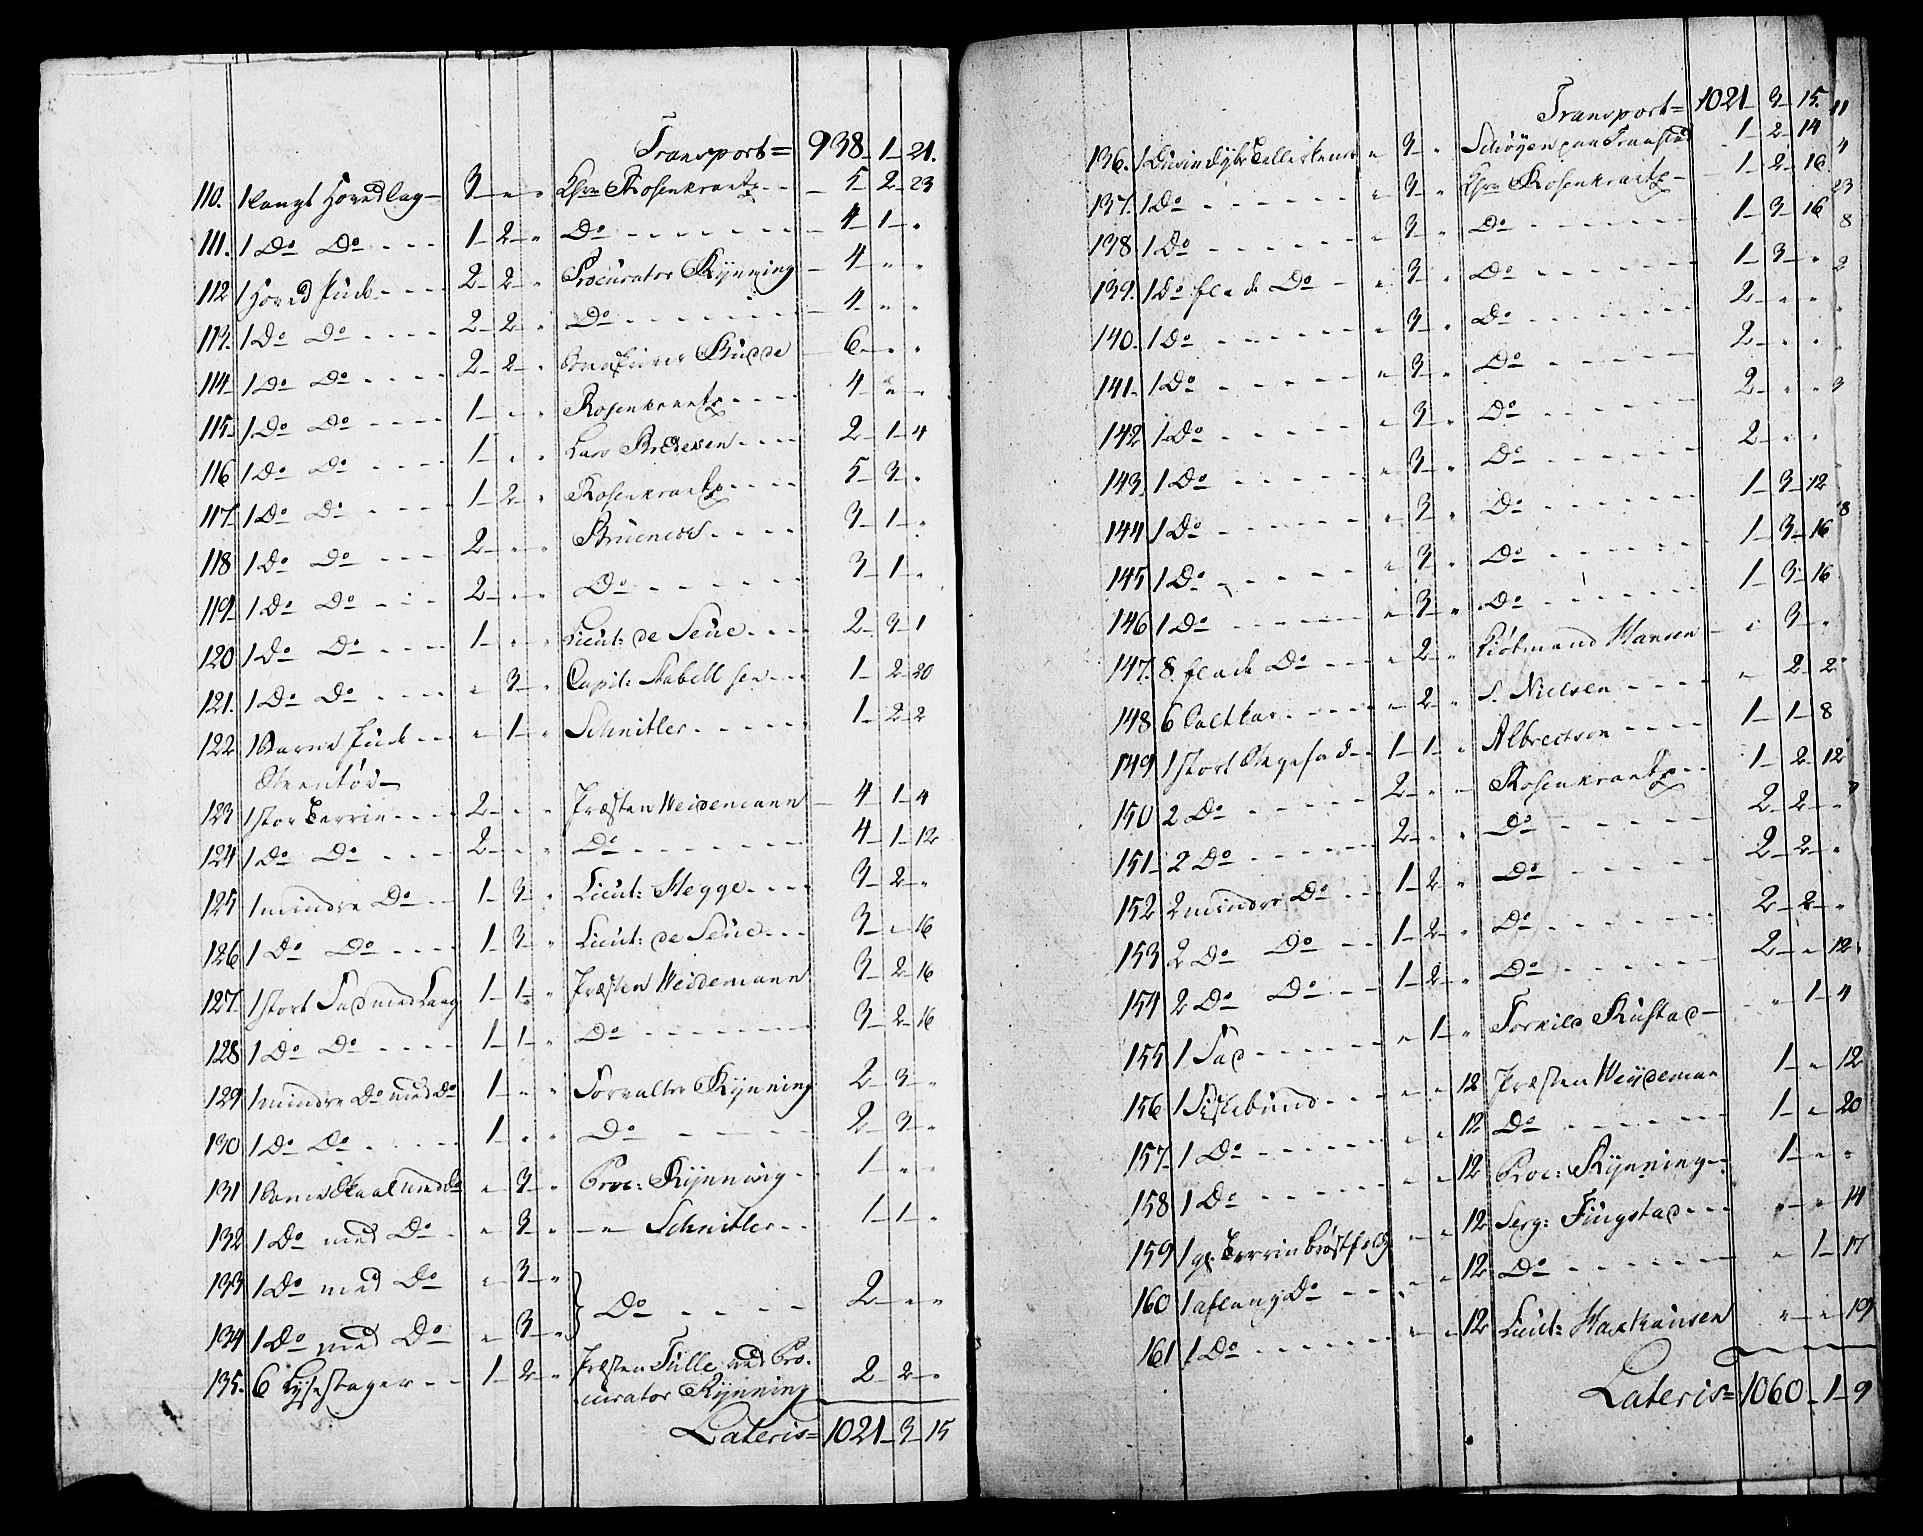 Transport = 938 1 21.
110. 1 langt Hovedlag 3 " " Hr Rosenkrantz 5 2 23
111. 1 Do Do 1 2 " Do 4 1 "
112 1 Hoved Pude 2 2 " Procurator Rynning 4 " "
113. 1 Do Do 2 2 " Do 4 " "
114 1 Do Do 2 2 " Budde 6 " "
115 1 Do Do 1 " " Rosenkrantz 4 " "
116 1 Do Do 1 " " Lars 2 1 4
117 1 Do Do 1 2 " Rosenkrantz 5 3 "
118 1 Do Do 2 " " Bruenech 3 1 "
119 1 Do Do 2 " " Do 3 1 "
120 1 Do Do 1 " " Lieut: de Seue 2 3 1
121. 1 Do Do " 3 " Capit: Stabell sen 1 2 20
122 1 Pude " 1 " Schnitler 1 2 2
Steentöi
123 1 stor Terrin 2 " " Præsten Weidemann 4 1 4
124 1 Do Do 2 " " Do 4 1 12
125 1 mindre Do 1 3 " Lieut: Hegge 3 2 "
126 1 Do Do 1 3 " Lieut: de Seue 3 " 16
127. 1 stort Fad med Laag 1 1 " Præsten Weidemann 3 2 16
128 1 Do Do 1 1 " Do 3 2 16
129 1 mindre Do med Do 1 " " Forvalter Rynning 2 3 "
130 1 Do Do 1 " " Do 2 3 "
131 1 Skaal med Do " 3 " Proc: Rynning 1 " "
132 1 Do med Do " 3 " " Schnitler 1 1 "
133 1 Do med Do " 3 "
134 1 Do med Do " 3 " Do 2 " "
135. 6 Lysestager 1 2 " Præsten Tulle ved Pro-
curator Rynning 2 2 "
Lateris = 1021 3 15
Transport = 1021 3 15.
136. 1 Tellerkener " 3 " Schøyen paa 1 2 14
137. 1 Do " 3 " Hr Rosenkrantz 1 2 16
138 1 Do " 3 " Do 1 3 16
139. 1 Do flade Do " 3 " Do 1 3 "
140. 1 Do " 3 " Do 2 " "
141. 1 Do " 3 " Do 2 " "
142 1 Do " 3 " Do 2 " "
143. 1 Do " 3 " Do 2 " "
144 1 Do " 3 " Do 1 3 12
145 1 Do " 3 " Do 1 3 16
146 1 Do " 3 " Do 1 3 16
147. 8 flade Do " 2 " Kiøbmand Hansen " 3 "
148 6 Saltkar " 2 " S. Nielsen " 2 2
149 1 stort Stegefad 1 1 " Albrectson 1 1 8
150 2 Do 2 " " Rosenkrantz 1 2 12
151 2 Do 2 " " Do 2 2 "
152 2 mindre Do 1 2 " Do 2 2 "
153 2 Do Do 1 2 " Do 2 2 "
154 2 Do Do 1 2 " Do 2 " 12
155 1 Fad " 1 " Torkild Rustad " 1 4
156 1 Fiskebund " " 12 Præsten Weydeman 1 " 12
157 1 Do " " 12 Do 1 " 20
158 1 Do " " 12 Proc: Rynning 1 " "
159 1 gl: Terrin " " 12 Serg: Fiugstad " " 14
160 1 aflang Do " " 12 Do " 1 17
161 1 Do " " 12 Lieut: Haxthausen " " 19
Lateris = 1060 1 9